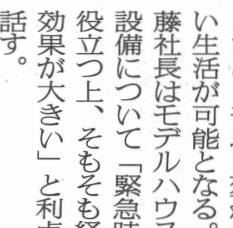 い生活が可能となる。
藤社長はモデルハウス
設備について「緊急時
役立つ上、そもそも経
効果が大きい」と利点
話す。